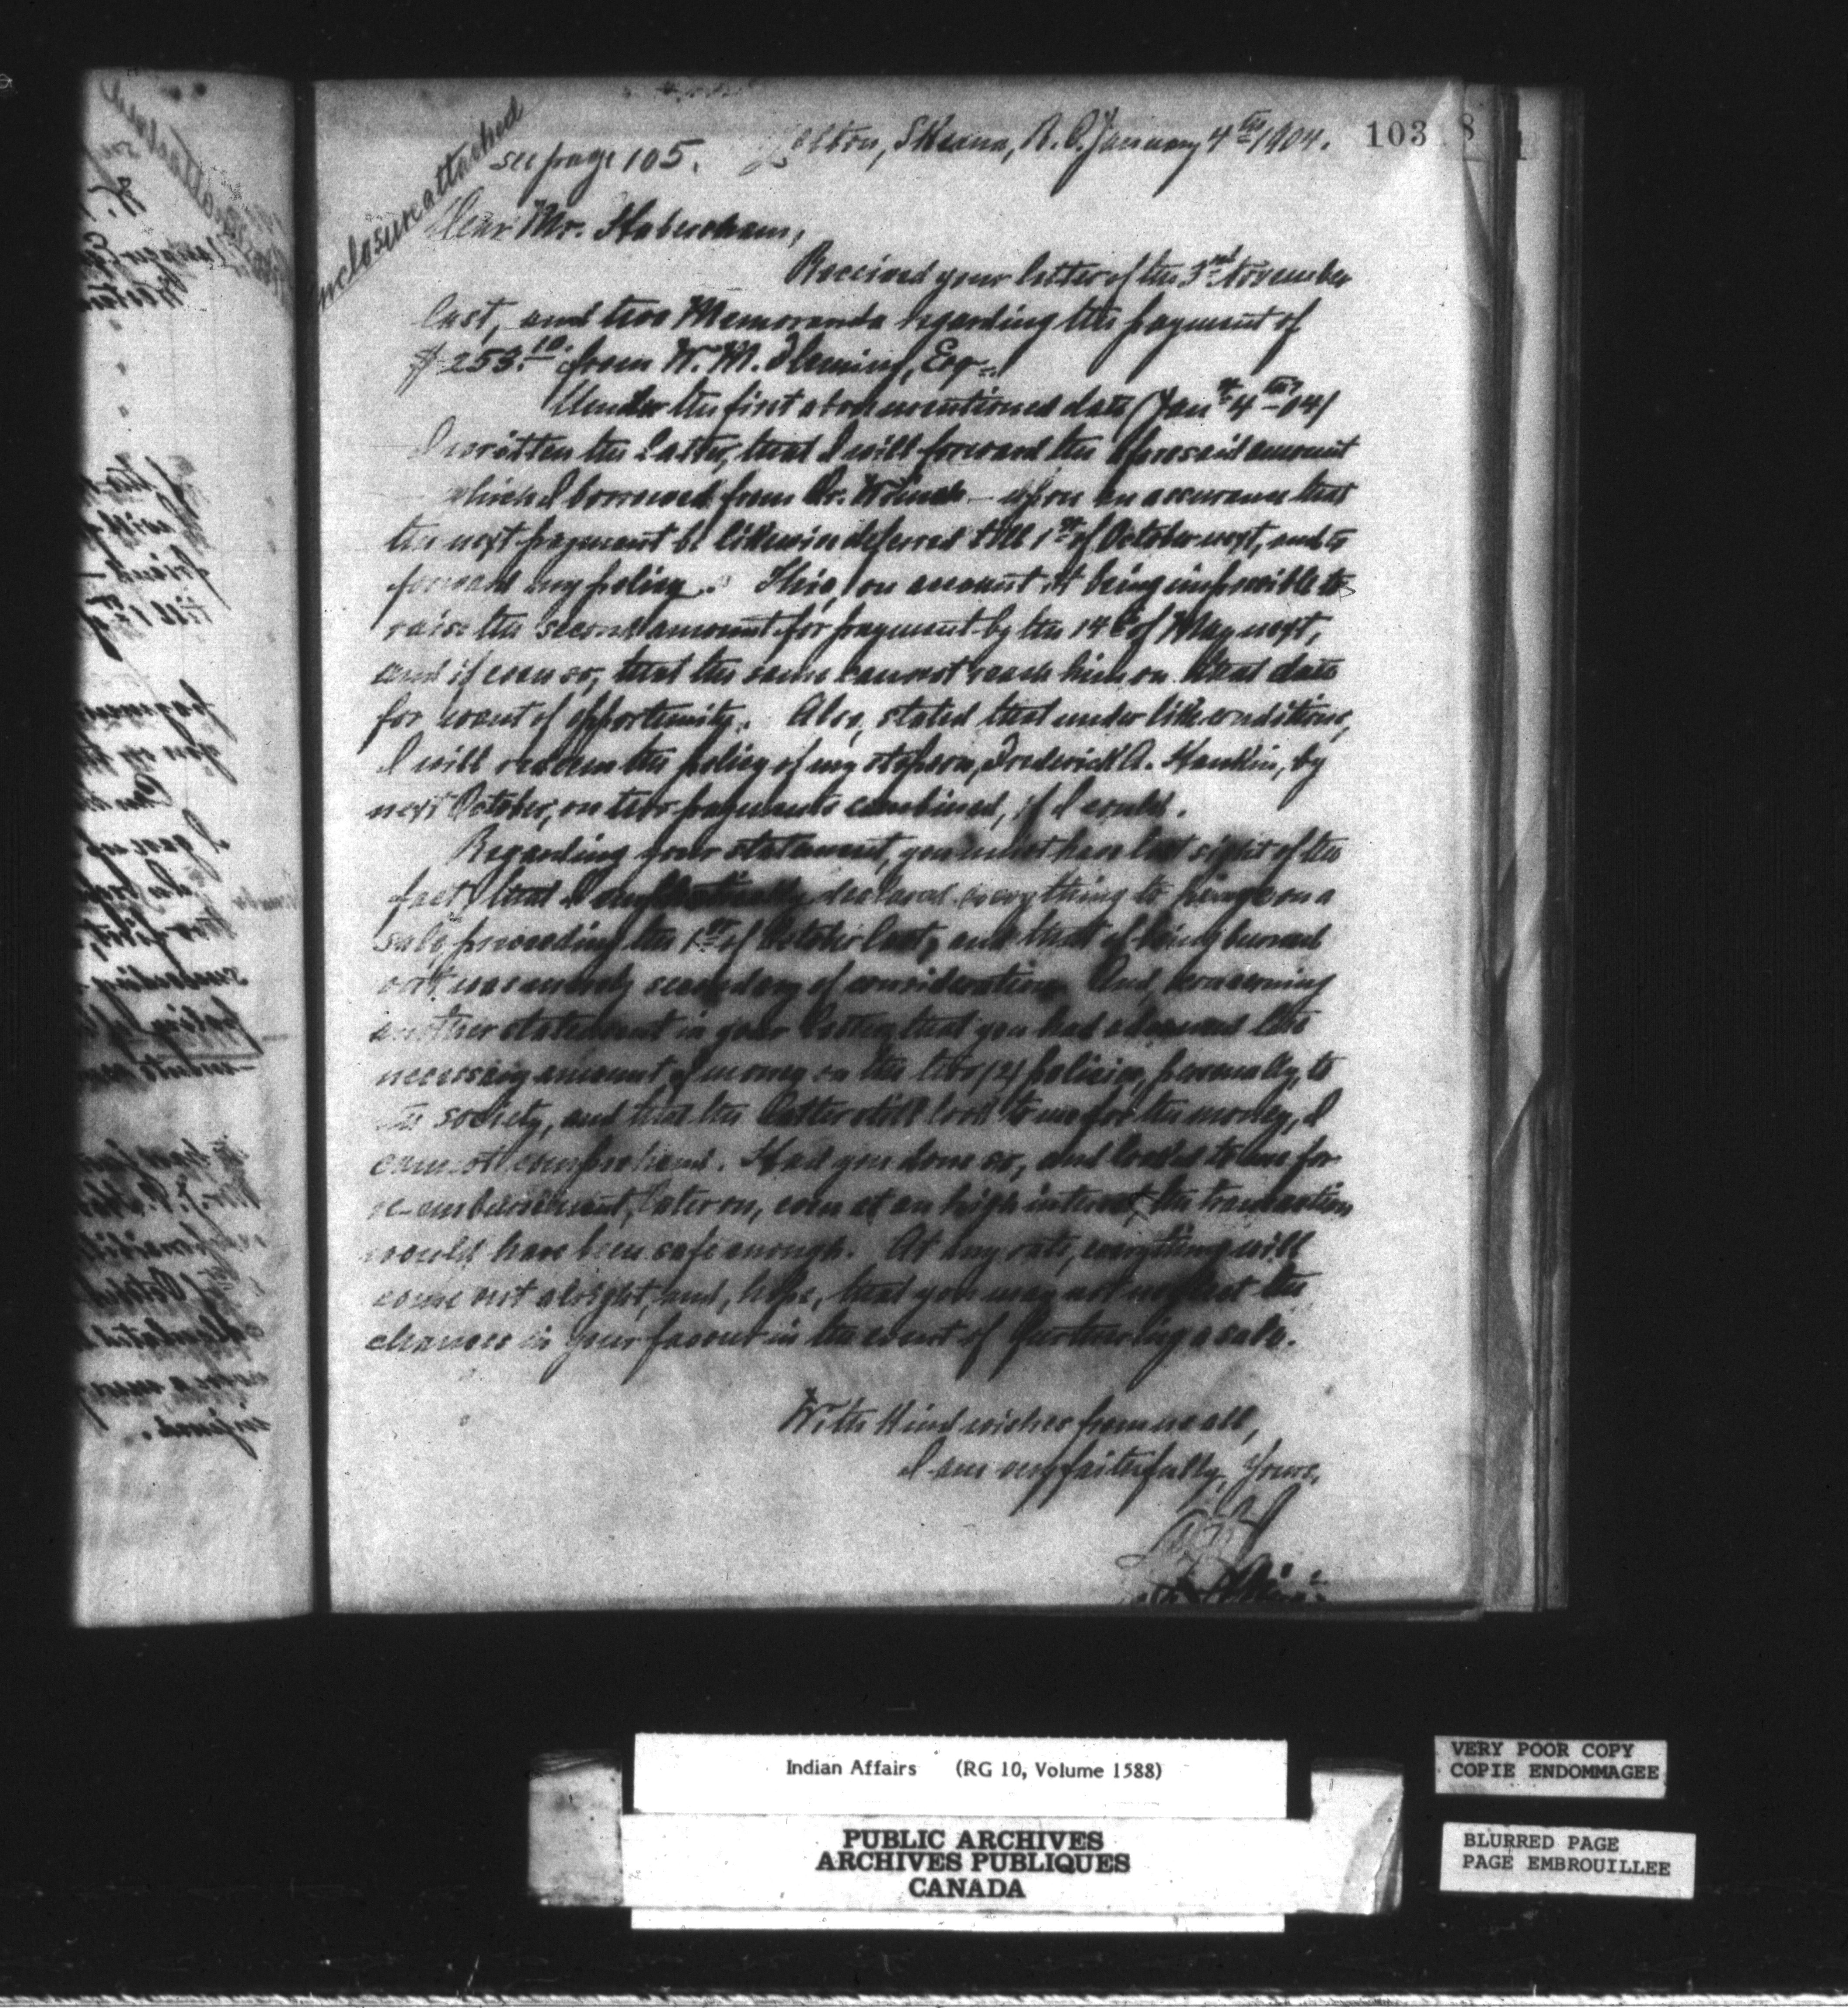 103
8
Inclosure attached
see page 105.
Skeena, B.C. January 4th 1904.
Dear Mr. Habersham,
Received your letter of the 3rd November
last, and two Memoranda regarding the payment of
$253.10. from W. M. Fleming, Esq.
Under the first above mentioned date (Jany 4th 04)
I written the latter, that I will forward the aforesaid amount
which I borrowed from Dr. Wrinch - upon an assurance that
the next payment be likewise deferred till 1st of October next, and to
forward my policy. This, on account it being impossible to
raise the second amount for payment by the 14th of May next,
and if even so, that the same cannot reach him on that date
for want of opportunity. Also, stated that under like conditions,
I will redeem the policy of my stepson, Frederick A. Hankin, by
next October, on two payments combined, if I could.
Regarding your statement, you must have lost sight of the
fact, that I emphatically declared everything to hinge on a
sale, preceeding the 1st of October last, and that of being burned
out was merely secondary of consideration. And, concerning
another statement in your letter, that you had advanced the
necessary amount of money on the two (2) policies, personally, to
the society, and that the latter still look to me for the money, I
cannot comprehend. Had you done so, and looked to me for
re-embursement, later on, even at an high interest, the transaction
would have been safe enough. At any rate, everything will
come out alright, and, hope, that you may not neglect the
chances in your favour in the event of furthering a sale.
With kind wishes from us all,
I am very faithfully, Yours,
Indian Affairs (RG 10, Volume 1588)
PUBLIC ARCHIVES
ARCHIVES PUBLIQUES
CANADA
VERY POOR COPY
COPIE ENDOMMAGEE
BLURRED PAGE
PAGE EMBROUILLEE